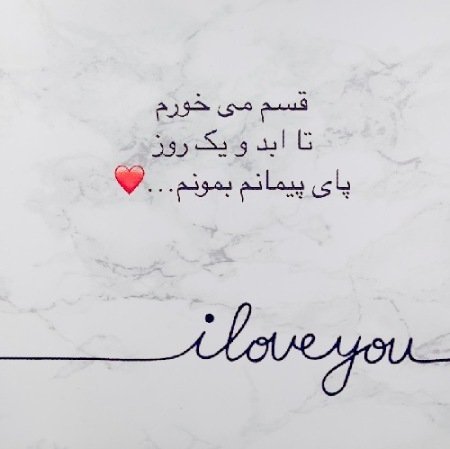 قسم می خورم
تا ابد و یک روز
پای پیمانم بمونم...❤️
i love you